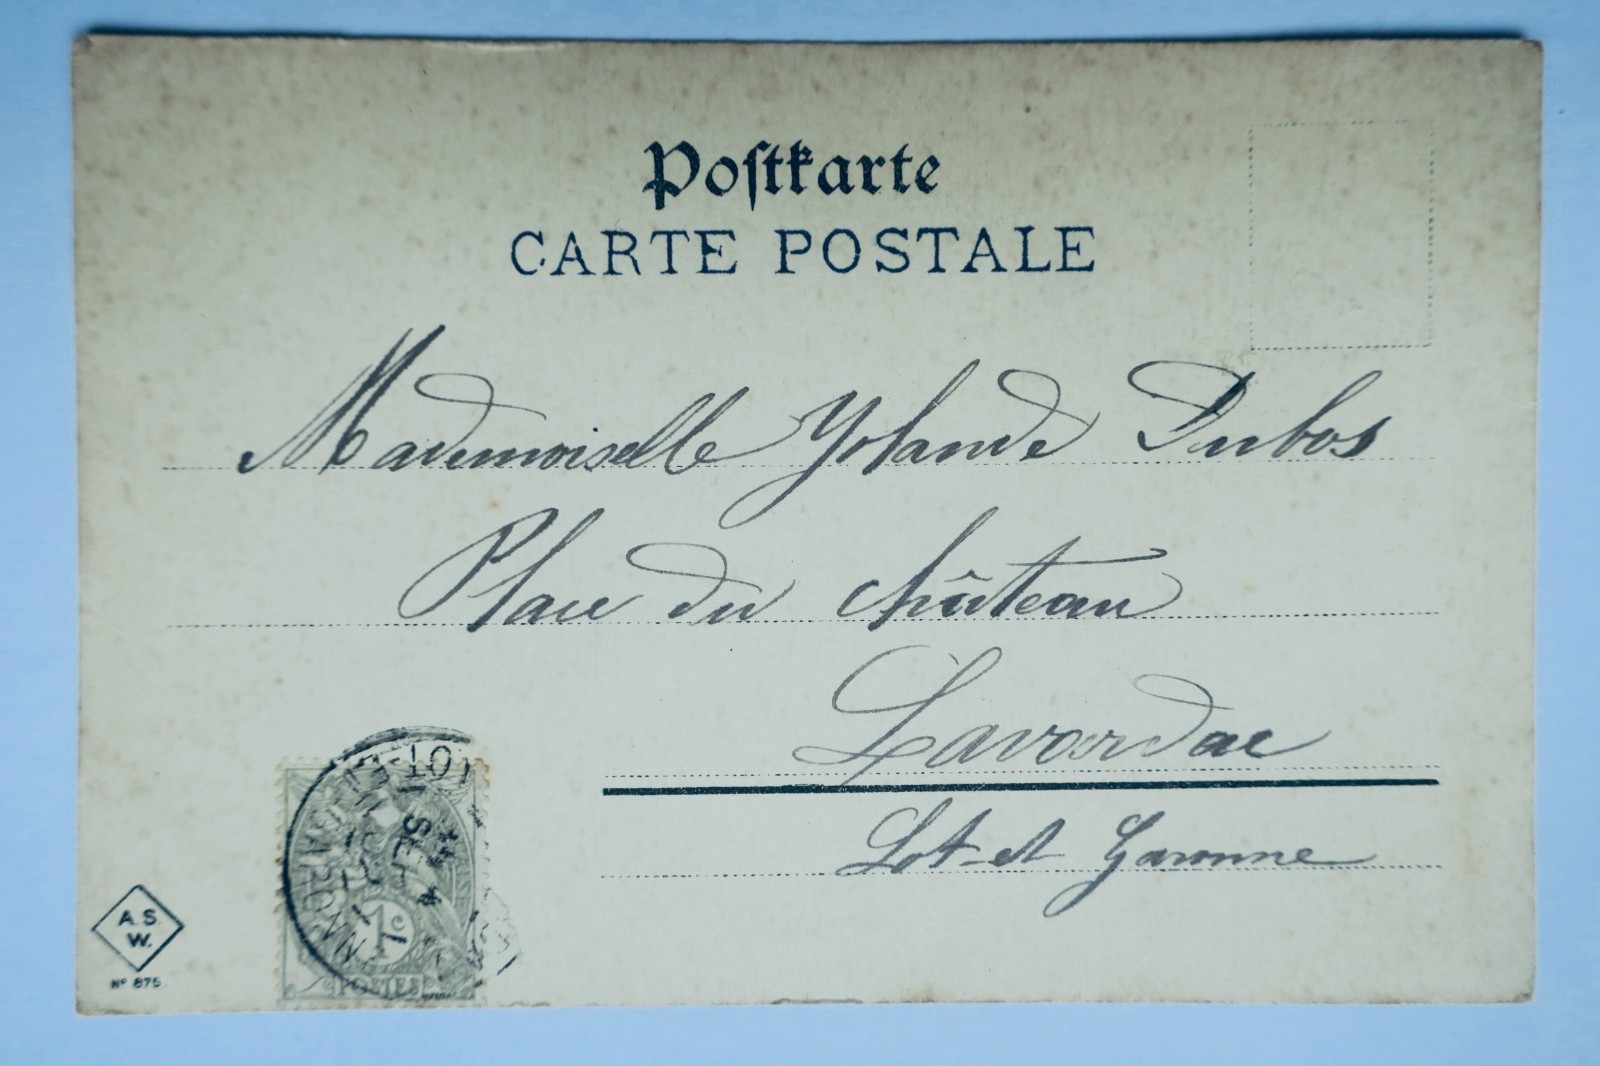 Postkarte
CARTE POSTALE
Mademoiselle Yolande Dubos
Place du château
Lavardac
Lot-et Garonne
1c
POSTES
SEPT
A.S.
W.
Nº 875.